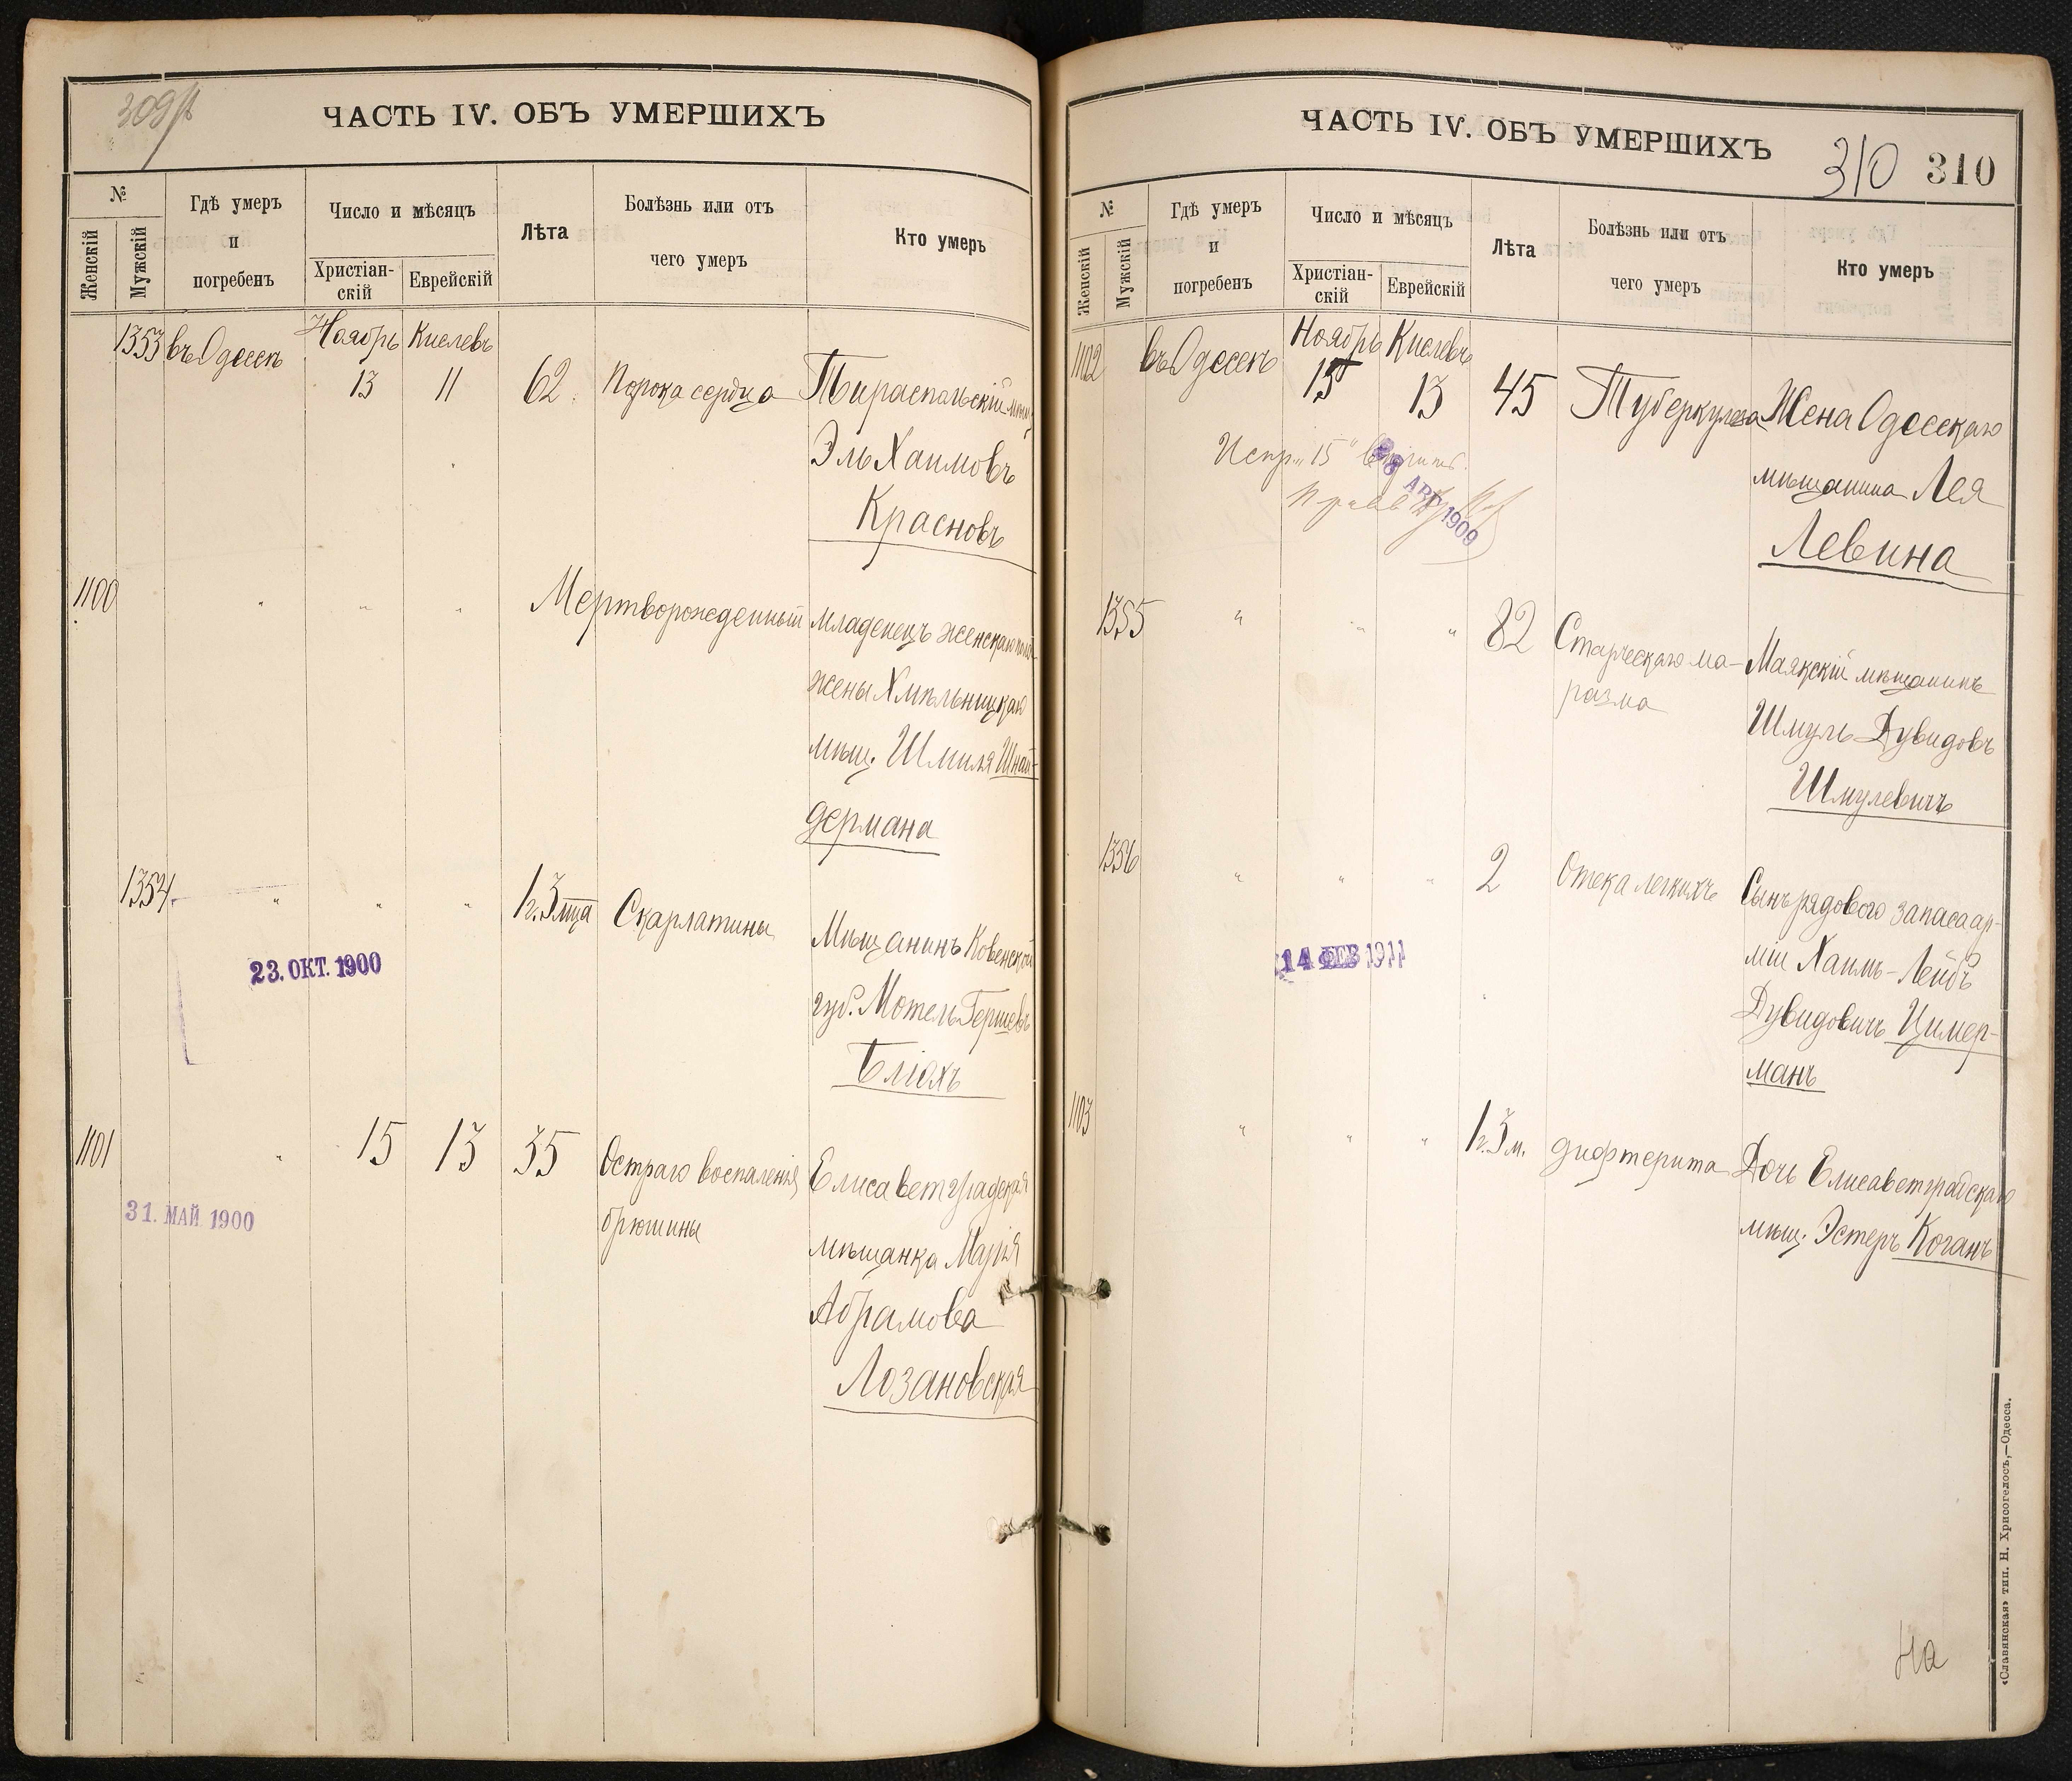 ЧАСТЬ IV. ОБЪ УМЕРШИХЪ
№
Женскій
Мужскій
Гдѣ умеръ
и
погребенъ
Число и мѣсяцъ
Христіан-
скій
Еврейскій
Лѣта
Болѣзнь или отъ
чего умеръ
Кто умеръ
1353 въ Одессѣ Ноябрь Кислевъ
13 11 62 Порока сердца Тираспольскій мѣщ.
Эль Хаимовъ
Красновъ
1100 " " " Мертворожденный младенецъ женскаго пола
жены Хмѣльницкаго
мѣщ. Шмиля Шнай-
дермана
1354 " " " 1 г. 3 мца Скарлатины Мѣщанинъ Ковенской
губ. Мотель Гершевъ
Бліохъ
23. ОКТ. 1900
1101 " 15 13 35 Остраго воспаленія Елисаветградская
брюшины мѣщанка Марія
Абрамова
Лозановская
31. МАЙ 1900
ЧАСТЬ IV. ОБЪ УМЕРШИХЪ
310 310
№
Женскій
Мужскій
Гдѣ умеръ
и
погребенъ
Число и мѣсяцъ
Христіан-
скій
Еврейскій
Лѣта
Болѣзнь или отъ
чего умеръ
Кто умеръ
1102 въ Одессѣ Ноябрь Кислевъ
15 13 45 Туберкулеза Жена Одесскаго
мѣщанина Лея
Левина
Испр. "15"
1909
1355 " " " 82 Старческаго ма- Маякскій мѣщанинъ
разма Шмуль Дувидовъ
Шмулевичъ
1356 " " " 2 Отека легкихъ Сынъ рядового запаса ар-
міи Хаимъ-Лейбъ
Дувидовичъ Цимер-
манъ
14 ФЕВ 1911
1103 " " " 1 г. 3 м. дифтерита Дочь Елисаветградскаго
мѣщ. Эстеръ Коганъ
На
«Славянская» тип. Н. Хрисогелосъ,—Одесса.